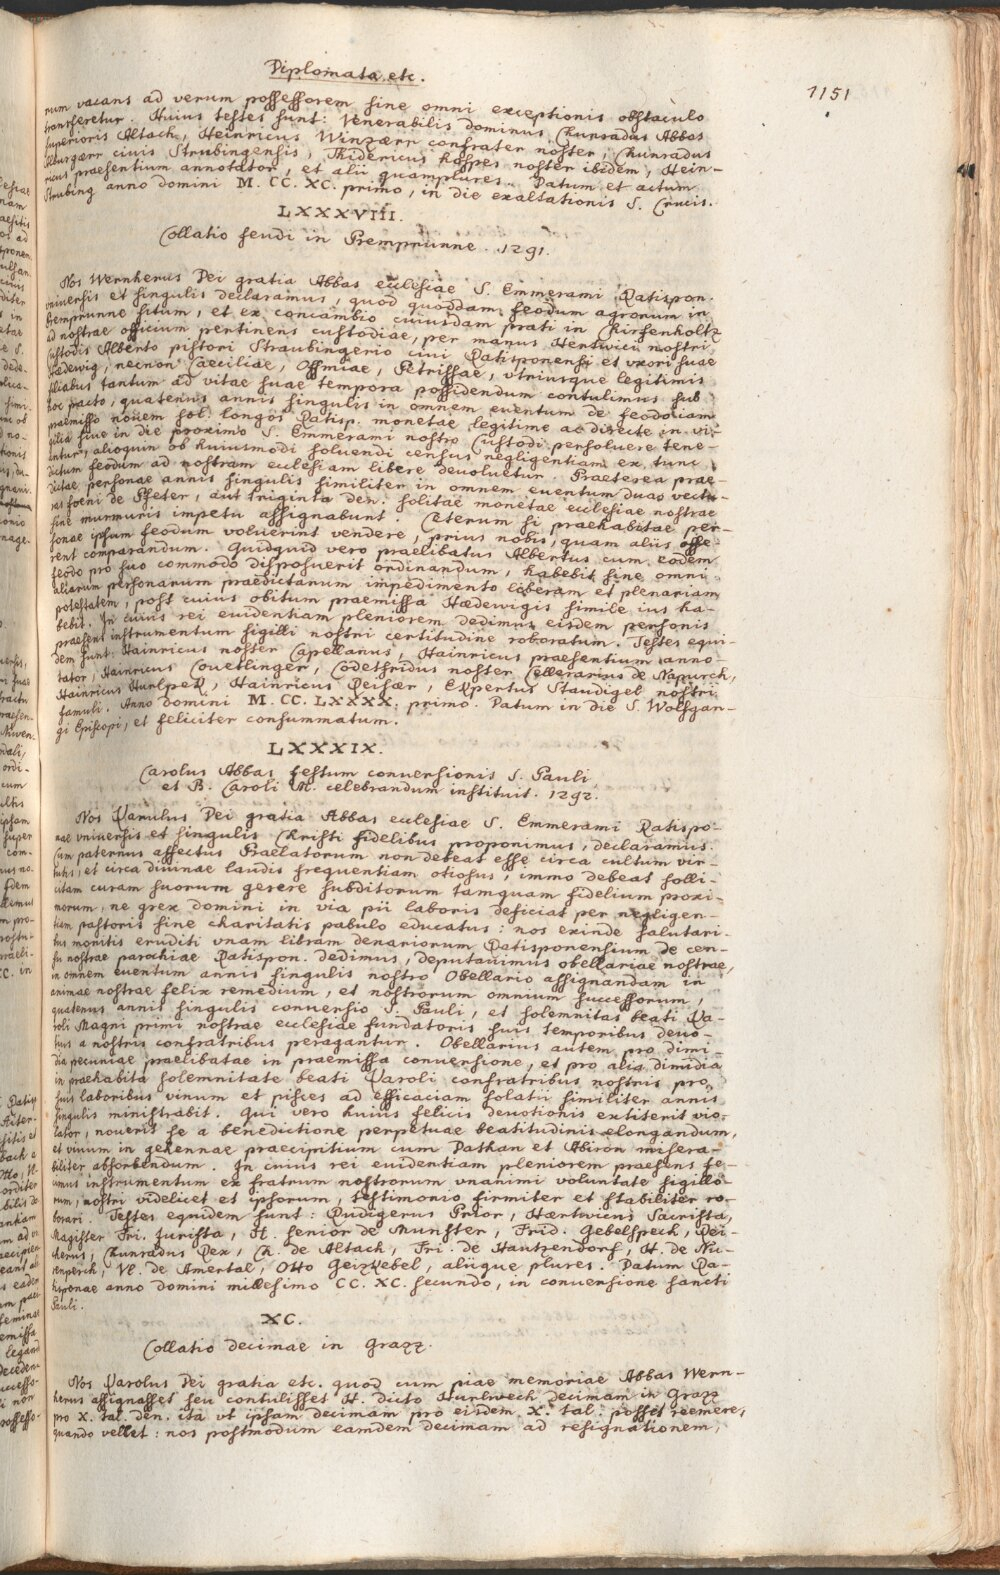 Diplomata etc.
1151
rum vacans ad verum possessorem sine omni exceptionis obstaculo
transferetur. Huius testes sunt: Venerabilis dominus Chunradus Abbas
superioris Altach, Heinricus Winzærr confrater noster, Chunradus
Alburgærr ciuis Strubingensis, Thidericus hospes noster ibidem, Hein-
ricus praesentium annotator, et alii quamplures. Datum et actum
Strubing anno domini M. CC. XC. primo, in die exaltationis S. Crucis.
LXXXVIII.
Collatio feudi in Premprunne. 1291.
Nos Wernherus Dei gratia Abbas ecclesiae S. Emmerami Ratispon.
vniuersis et singulis declaramus, quod quoddam feodum agrorum in
Premprunne situm, et ex concambio cuiusdam prati in Chirsenholtz
ad nostrae officium pertinens custodiae, per manus Hentwici nostri
custodis Alberto pistori Straubingerio ciui Ratisponensi et vxori suae
Hædewig, necnon Caeciliae, Offmiae, Petrissae, vtriusque legitimis
filiabus tantum ad vitae suae tempora possidendum contulimus sub
hoc pacto, quatenus annis singulis in omnem euentum de feodo iam
praemisso nouem sol. longos Ratisp. monetae legitime ac directe in vi-
gilia siue in die proximo S. Emmerami nostro Custodi persoluere tene-
antur, alioquin ob huiusmodi soluendi census negligentiam ex tunc
dictum feodum ad nostram ecclesiam libere deuoluetur. Praeterea prae-
dictae personae annis singulis similiter in omnem euentum duas vectu-
ras foeni de Pfeter, aut triginta den. solitae monetae ecclesiae nostrae
sine murmuris impetu assignabunt. Ceterum si praehabitae per-
sonae ipsum feodum voluerint vendere, prius nobis, quam aliis offe-
rent comparandum. Quidquid vero praelibatus Albertus cum eodem
feodo pro suo commodo disposuerit ordinandum, habebit sine omni
aliarum personarum praedictarum impedimento liberam et plenariam
potestatem, post cuius obitum praemissa Hædewigis simile ius ha-
bebit. In cuius rei euidentiam pleniorem dedimus eisdem personis
praesens instrumentum sigilli nostri certitudine roboratum. Testes equi-
dem sunt: Hainricus noster Capellanus, Hainricus praesentium anno-
tator, Hainricus Couetlinger, Codethridus noster Cellerarius de Nappurch,
Hainricus Hurlpek, Hainricus Deisær, Ekpertus Staudigel nostri
famuli. Anno domini M. CC. LXXXX. primo. Datum in die S. Wolfgan-
gi Episcopi, et feliciter consummatum.
LXXXIX.
Carolus Abbas festum conuersionis S. Pauli,
et B. Caroli M. celebrandum instituit. 1292.
Nos Karulus Dei gratia Abbas ecclesiae S. Emmerami Ratispo-
nae vniuersis et singulis Christi fidelibus proponimus, declaramus.
Cum paternus affectus Praelatorum non debeat esse circa cultum vir-
tutis, et circa diuinae laudis frequentiam otiosus, immo debeat solli-
citam curam suorum gerere subditorum tamquam fidelium proxi-
morum, ne grex domini in via pii laboris deficiat per negligen-
tiam pastoris sine charitatis pabulo educatus: nos exinde salutari-
bus monitis eruditi vnam libram denariorum Ratisponensium de cen-
su nostrae parochiae Ratispon. dedimus, deputauimus obellariae nostrae,
in omnem euentum annis singulis nostro Obellario assignandam in
animae nostrae felix remedium, et nostrorum omnium successorum,
quatenus annis singulis conuersio S. Pauli, et solemnitas beati Ka-
roli Magni primi nostrae ecclesiae fundatoris suis temporibus deuo-
tius a nostris confratribus peragantur. Obellarius autem pro dimi-
dia pecuniae praelibatae in praemissa conuersione, et pro alia dimidia
in praehabita solemnitate beati Karoli confratribus nostris pro
suis laboribus vinum et pisces ad efficaciam solatii similiter annis
singulis ministrabit. Qui vero huius felicis deuotionis extiterit vio-
lator, nouerit se a benedictione perpetuae beatitudinis elongandum,
et vinum in gehennae praecipitium cum Dathan et Abiron misera-
biliter absorbendum. In cuius rei euidentiam pleniorem praesens fe-
cimus instrumentum ex fratrum nostrorum vnanimi voluntate sigillo-
rum, nostri videlicet et ipsorum, testimonio firmiter et stabiliter ro-
borari. Testes equidem sunt: Rudigerus Prior, Hærtwicus Sacrista,
Magister Fri. Jurista, H. senior de Munster, Frid. Gebelspech, Rei-
cherus, Chunradus Rex, Ch. de Altach, Fri. de Hautzendorf, H. de Nu-
renperch, W. de Amertal, Otto Geizkebel, aliique plures. Datum Ra-
tisponae anno domini millesimo CC. XC. secundo, in conuersione sancti
Pauli.
XC.
Collatio decimae in Grazz.
Nos Karolus Dei gratia etc. quod cum piae memoriae Abbas Wern-
herus assignasset seu contulisset H. dicto Hurlwech decimam in Grazz
pro X. tal. den. ita vt ipsam decimam pro eisdem X. tal. posset reemere,
quando vellet: nos postmodum eamdem decimam ad resignationem,